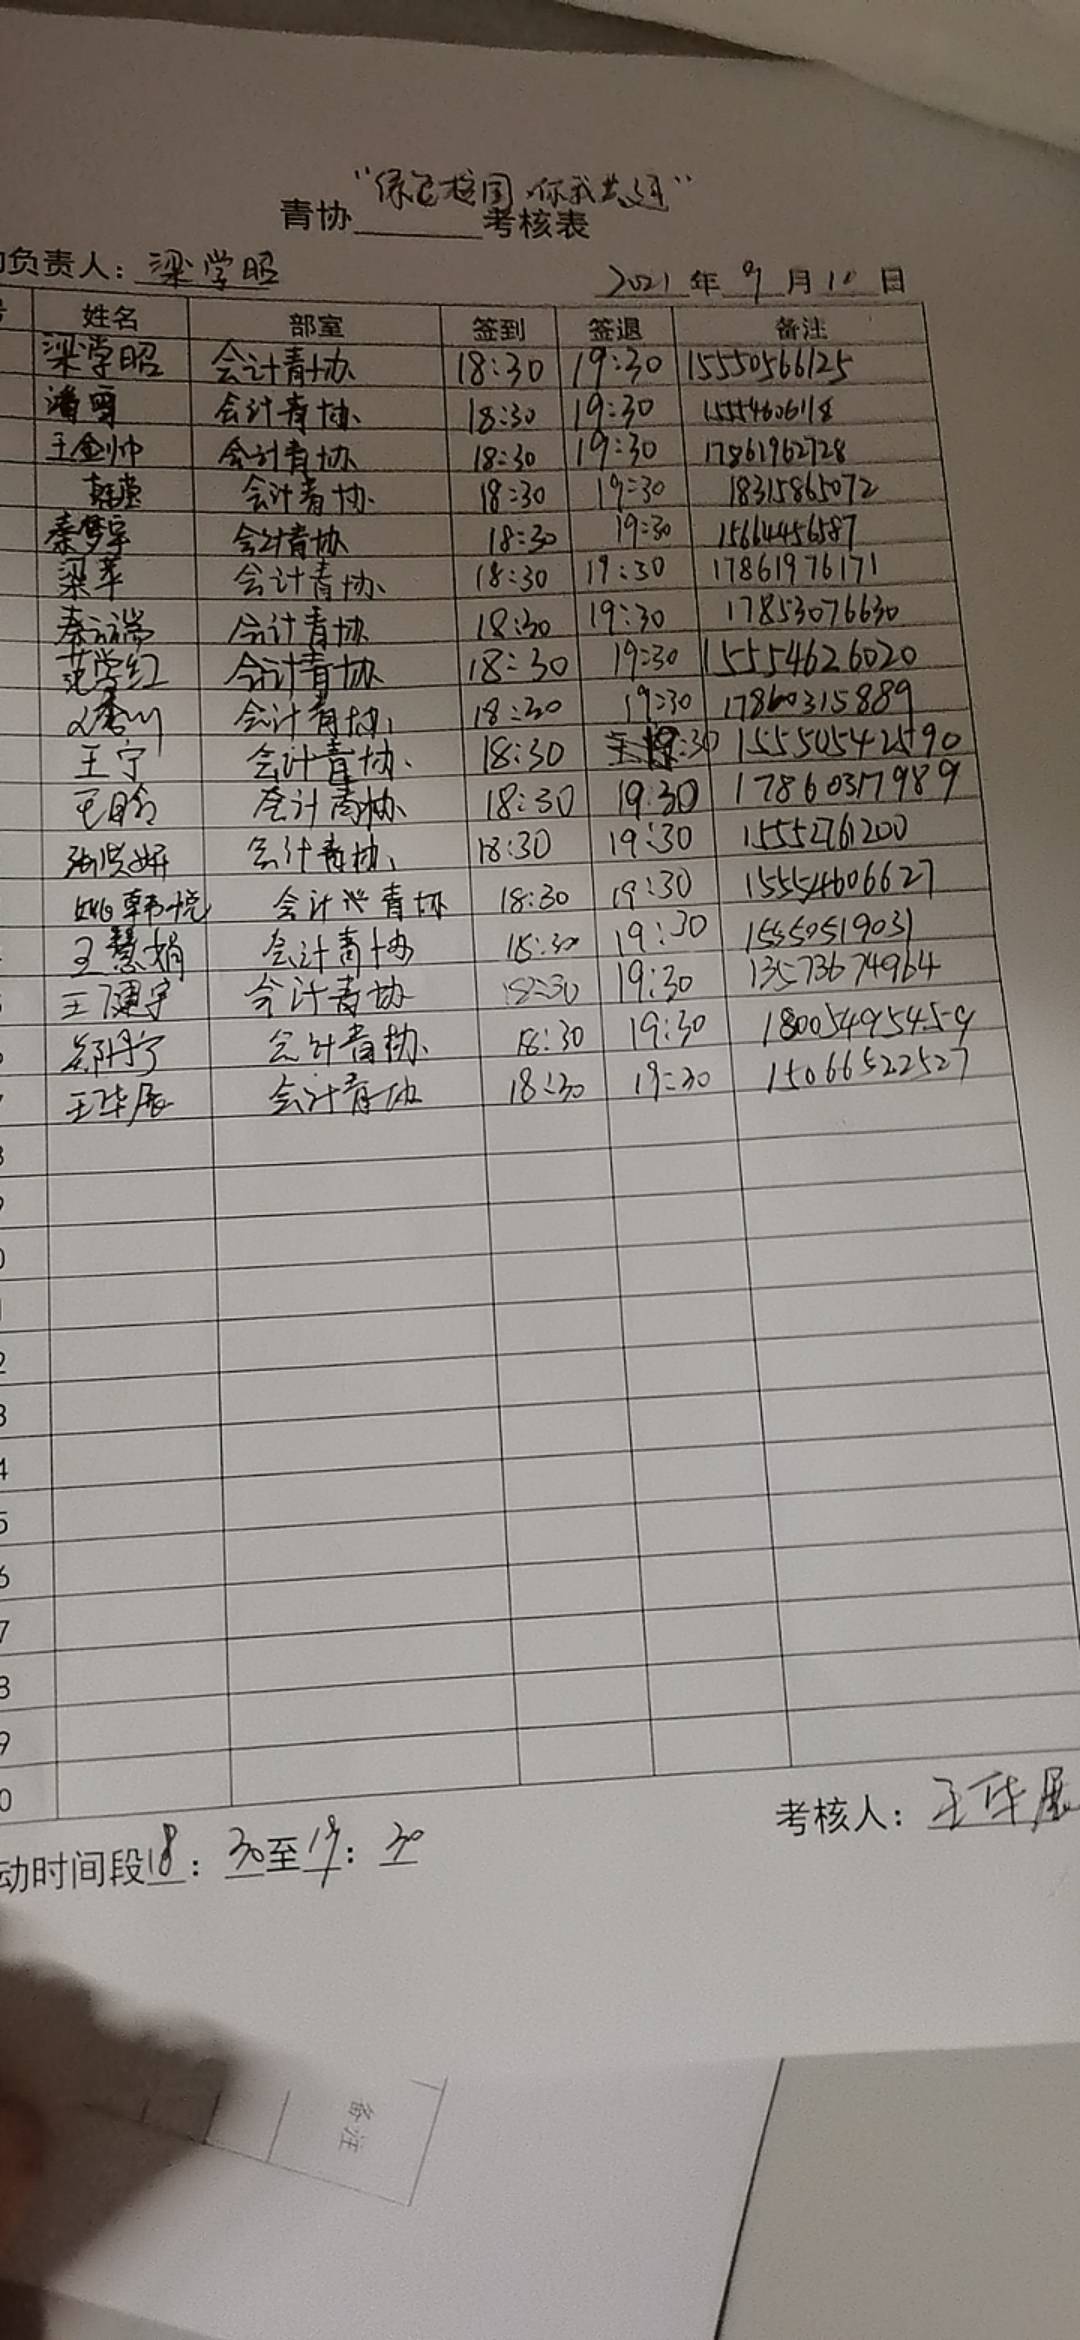 "绿色校园,你我共建"
青协 考核表
负责人：梁学昭 2021年9月10日
姓名 部室 签到 签退 备注
梁学昭 会计青协 18:30 19:30 15550566125
潘雪 会计青协 18:30 19:30 15554606118
王金帅 会计青协 18:30 19:30 17861962728
会计青协 18:30 19:30 18315865072
秦梦宇 会计青协 18:30 19:30 15664456587
梁苹 会计青协 18:30 19:30 17861976171
会计青协 18:30 19:30 17853076630
范学红 会计青协 18:30 19:30 15554626020
会计青协 18:30 19:30 17860315889
王宁 会计青协 18:30 19:30 155505542590
会计青协 18:30 19:30 17860317989
会计青协 18:30 19:30 15552761200
姚韩悦 会计 青协 18:30 19:30 15554606627
王慧娟 会计青协 18:30 19:30 15550519031
王健宇 会计青协 18:30 19:30 13573674964
郑丹宁 会计青协 18:30 19:30 18005495459
王华展 会计青协 18:30 19:30 15066522527
考核人：王华展
动时间段18：30至19：30
备注